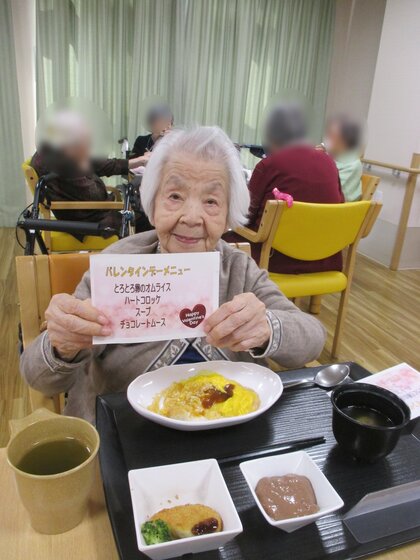 バレンタインデーメニュー
とろとろ卵のオムライス
ハートコロッケ
スープ
チョコレートムース
Happy
Valentine's
DAY